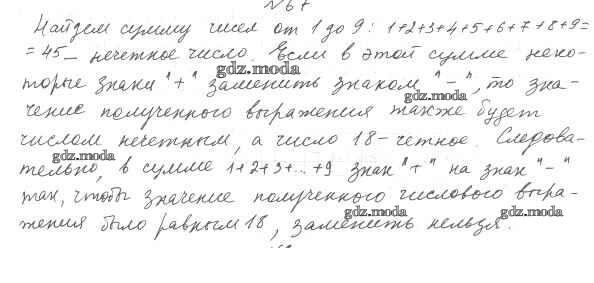 №67
Найдем сумму чисел от 1 до 9: 1+2+3+4+5+6+7+8+9=
= 45 – нечетное число. Если в этой сумме неко-
gdz.moda
торые знаки "+" заменить знаком "–", то зна-
gdz.moda
чение полученного выражения также будет
числом нечетным, а число 18 – четное. Следова-
gdz.moda
тельно, в сумме 1+2+3+...+9 знак "+" на знак "–"
так, чтобы значение полученного числового выра-
gdz.moda gdz.moda
жения было равным 18, заменить нельзя.